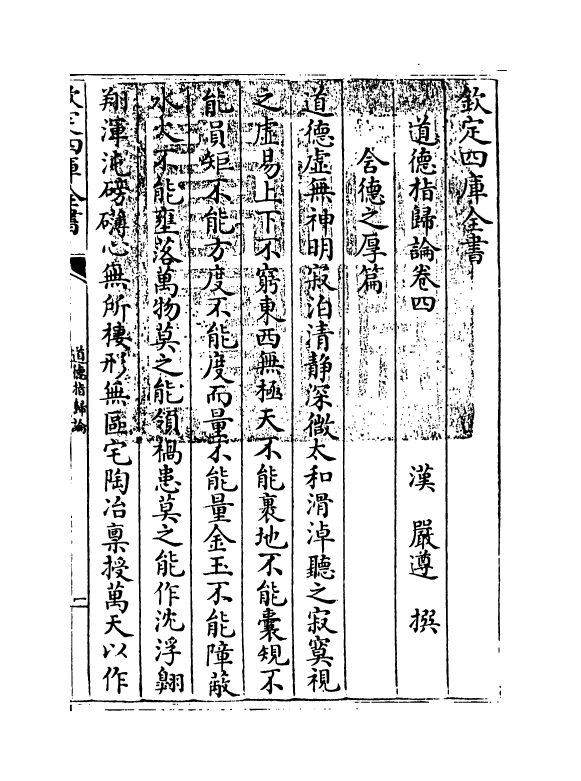 欽定四庫全書
道德指歸論卷四
漢 嚴遵 撰
含德之厚篇
道德虛無神明寂泊清靜深微太和滑淖聽之寂寞視
之虛易上下不窮東西無極天不能裹地不能囊規不
能員矩不能方度不能度而量不能量金玉不能障蔽
水火不能壅落萬物莫之能領禍患莫之能作沈浮翺
翔渾沌磅礴心無所棲形無區宅陶冶禀授萬天以作
欽定四庫全書
道德指歸論
一